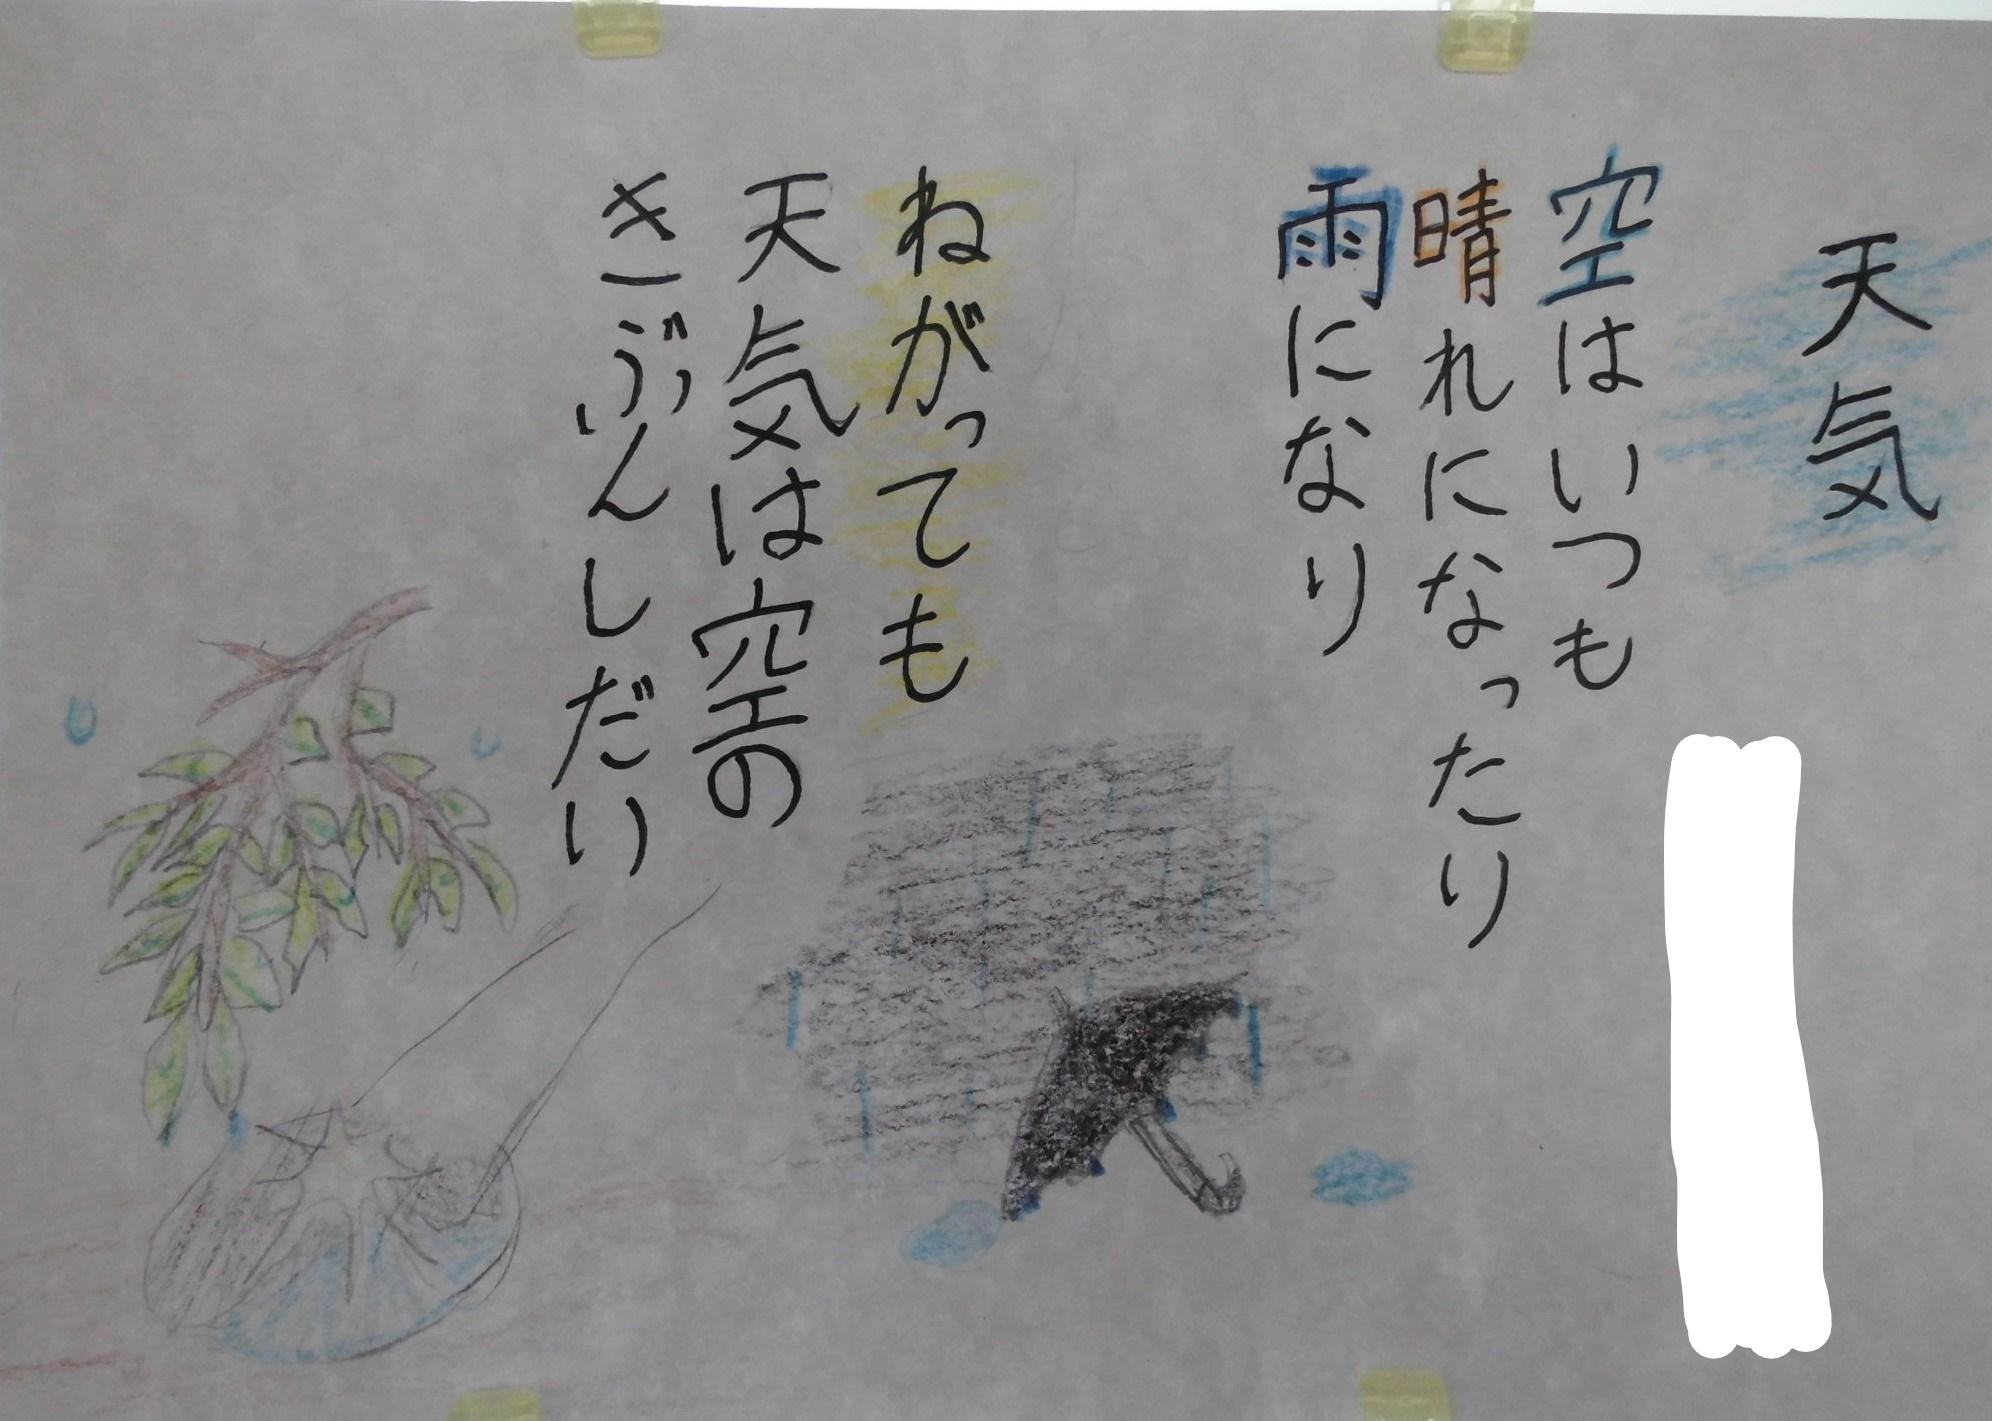 天気
空はいつも
晴れになったり
雨になり
ねがっても
天気は空の
きぶんしだい